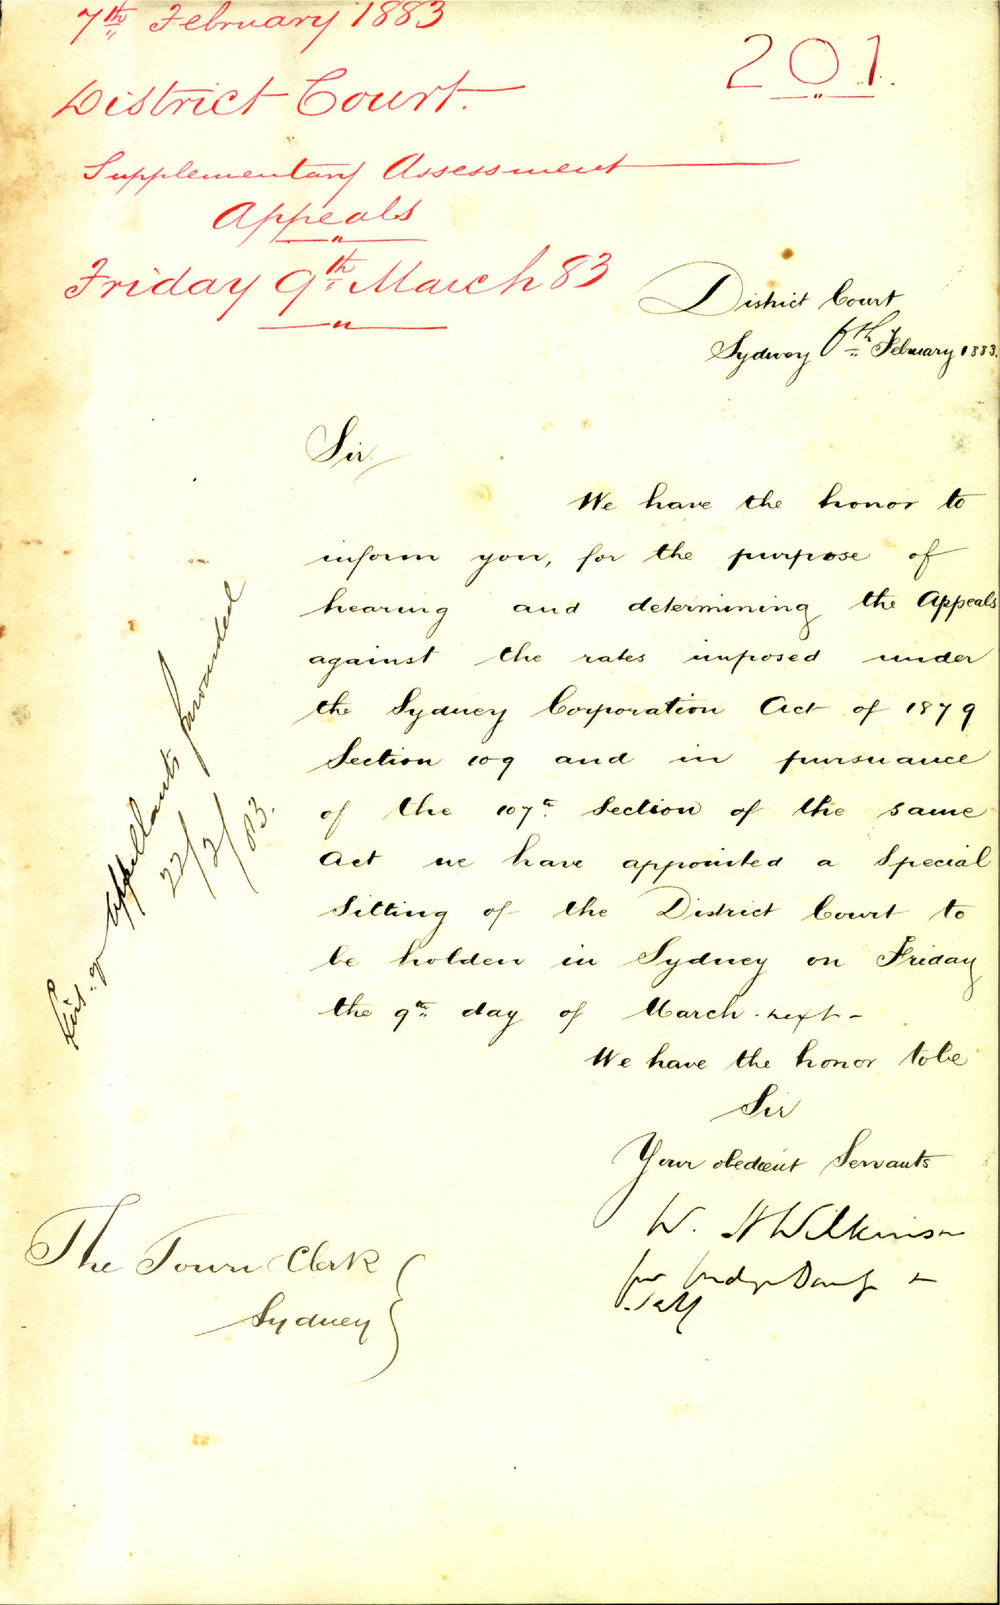 7th February 1883
201.
District Court.
Supplementary Assessment
Appeals
Friday 9th March 83
District Court
Sydney 6th February 1883.
Sir
We have the honor to
inform you, for the purpose of
hearing and determining the Appeals
against the rates imposed under
the Sydney Corporation Act of 1879
Section 109 and in pursuance
of the 107th Section of the same
Act we have appointed a Special
Sitting of the District Court to
be holden in Sydney on Friday
the 9th day of March next -
We have the honor to be
Sir
Your obedient Servants
W. H Wilkinson
for Judge &
Self
The Town Clerk
Sydney
List of appellants forwarded
22/2/83.